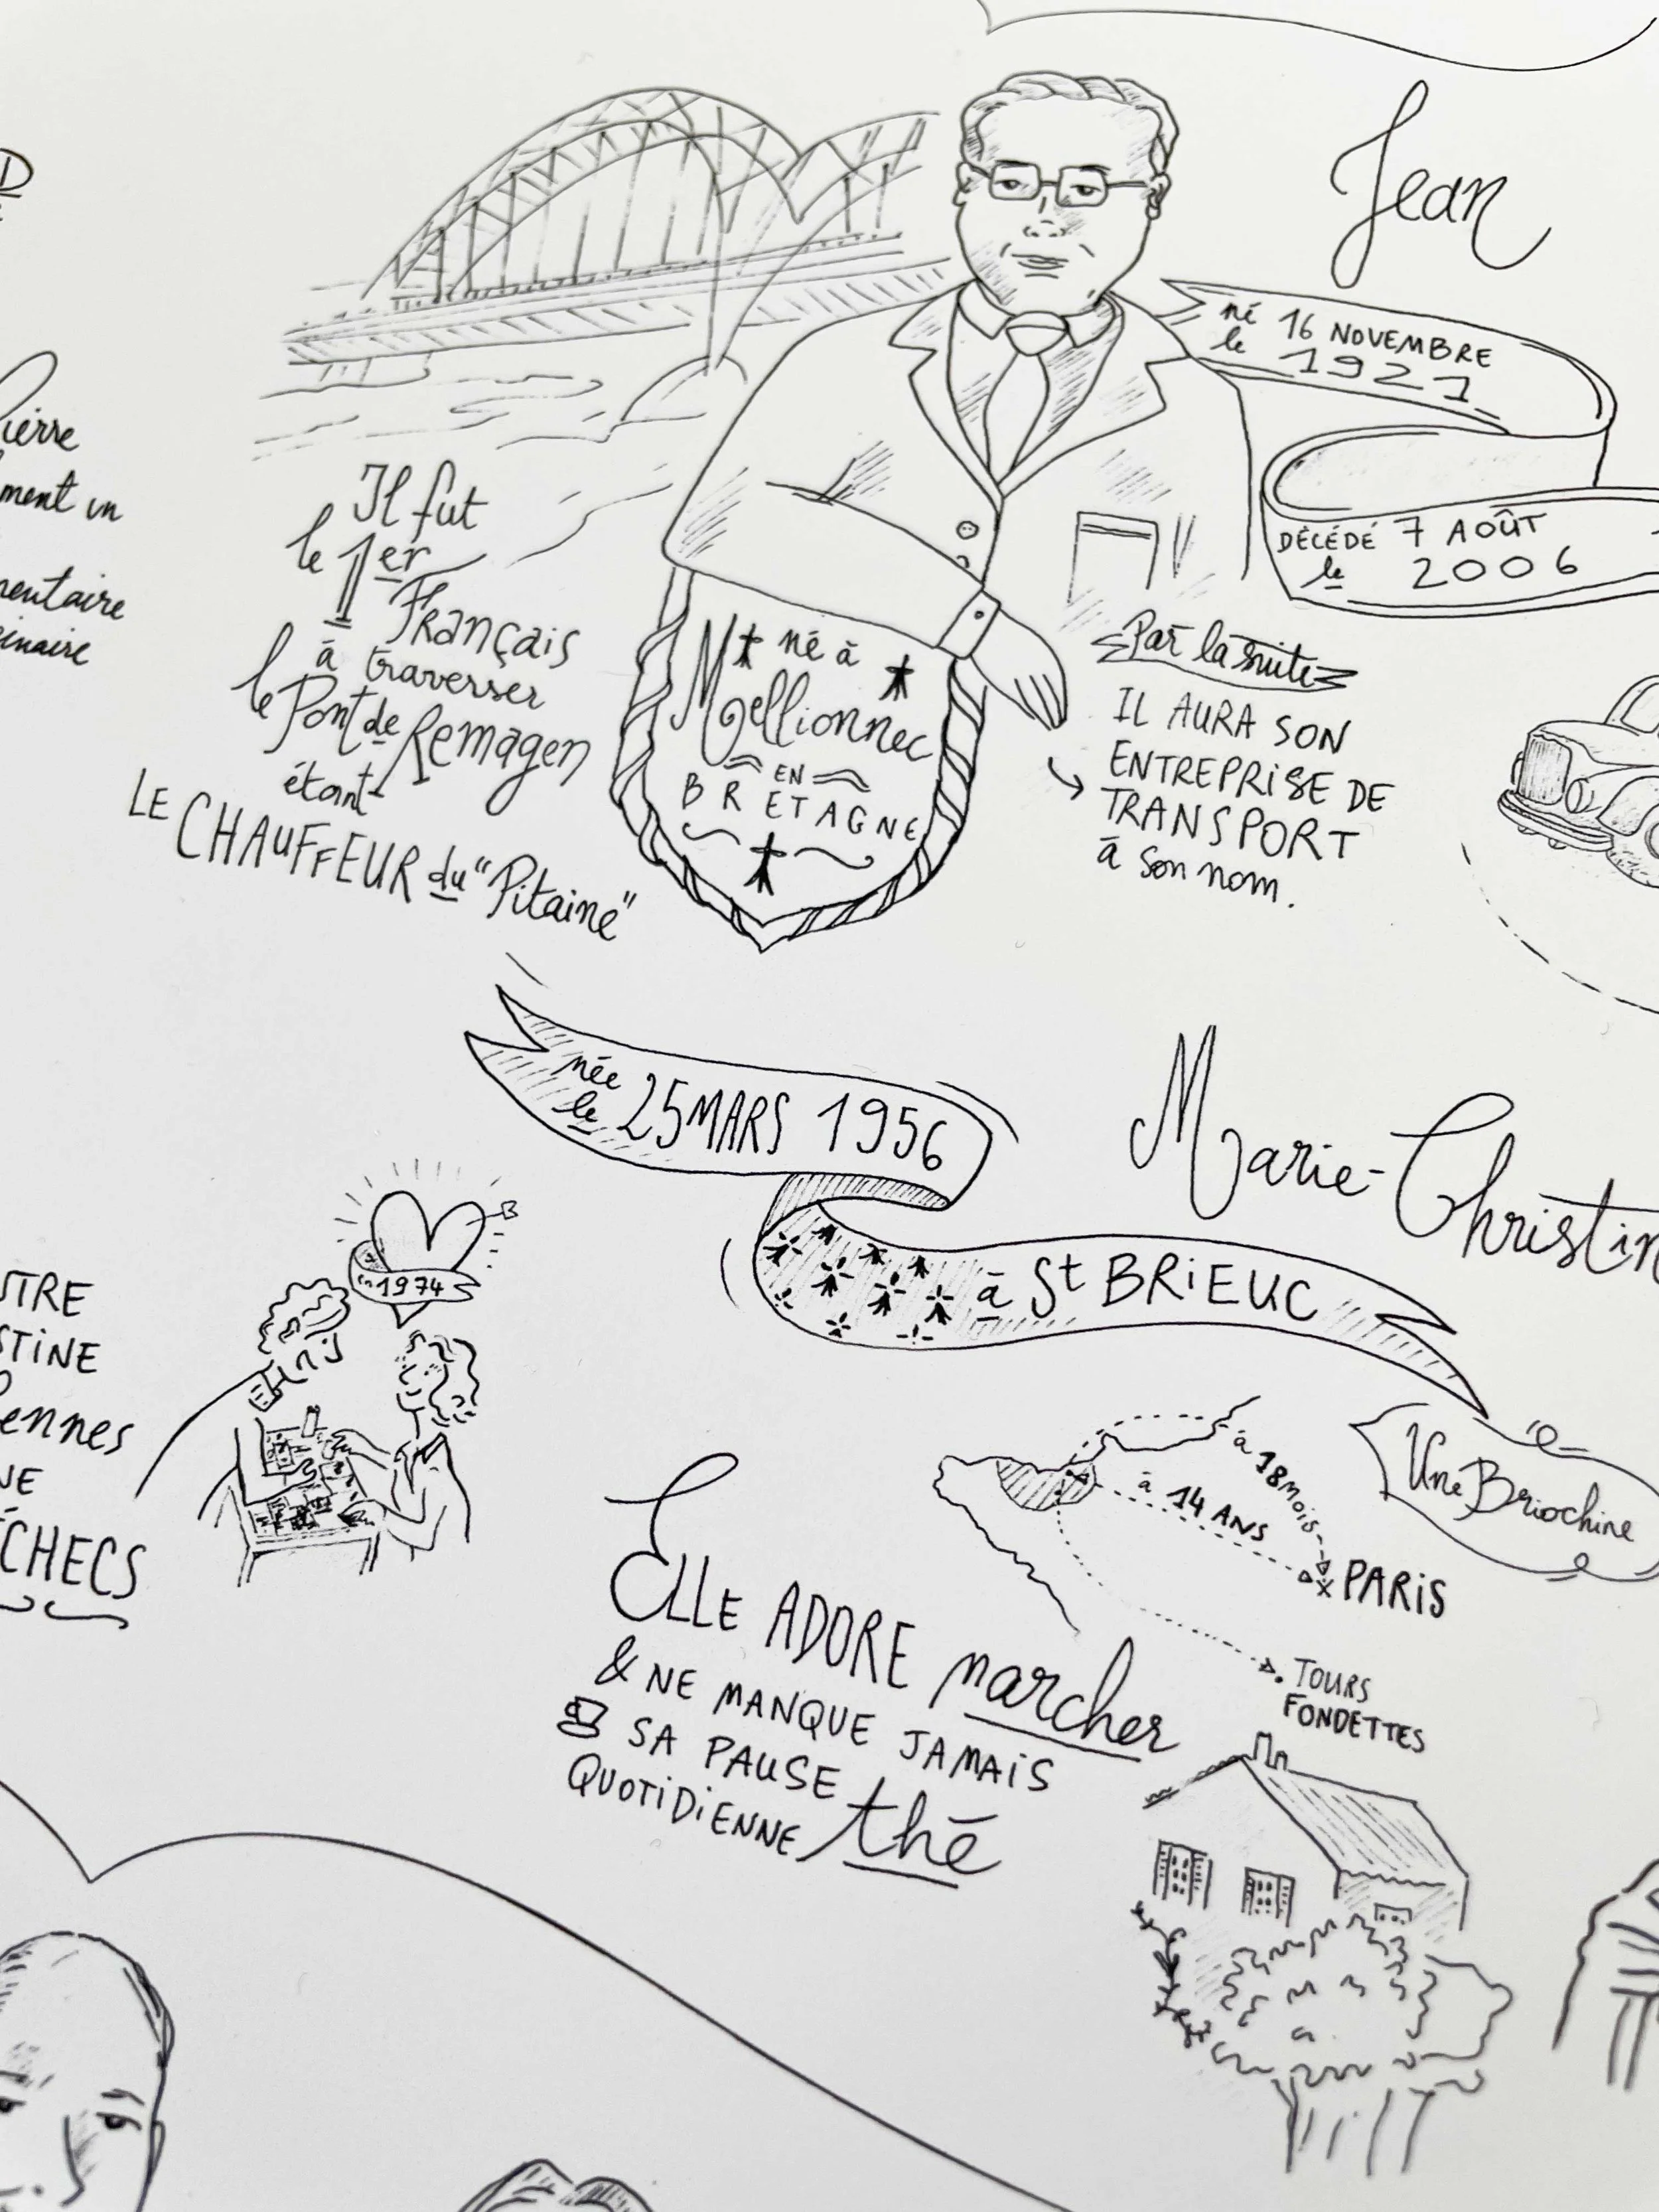 Jean
né le 16 NOVEMBRE
1921
DÉCÉDÉ le 7 AOÛT
2006
Il fut
le 1er
Français
à traverser
le Pont de Remagen
étant
LE CHAUFFEUR du "Pitaine"
né à
Mellionnec
EN
BRETAGNE
Par la suite
IL AURA SON
ENTREPRISE DE
TRANSPORT
à son nom.
ment un
mentaire
née le 25 MARS 1956
à St BRIEUC
Marie-Christin
en 1974
CHECS
Une Briochine
à 18 mois
à 14 ANS
PARIS
TOURS
FONDETTES
ELLE ADORE marcher
& NE MANQUE JAMAIS
SA PAUSE
QUOTIDIENNE thé